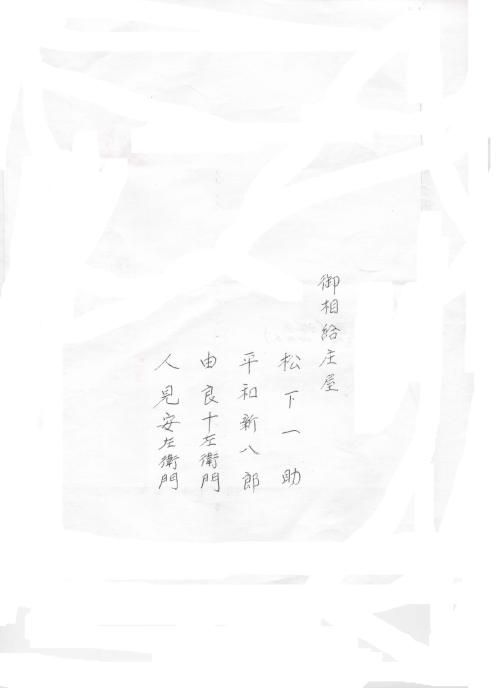 御相給庄屋
松下一助
平和新八郎
由良十左衛門
人見安左衛門